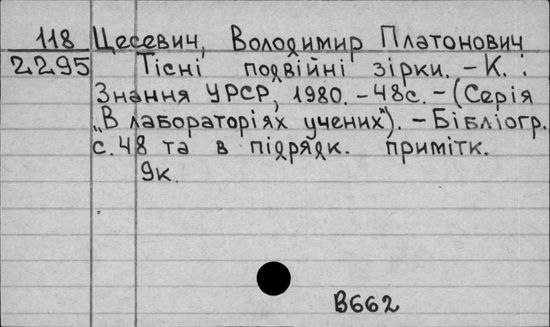 118 Цесевич, Володимир Платонович
2295 Тісні подвійні зірки. – К. :
Знання УРСР, 1980. – 48с. – (Серія
„В лабораторіях учених"). – Бібліогр.
с. 48 та в підрядк. примітк.
9к.
В662